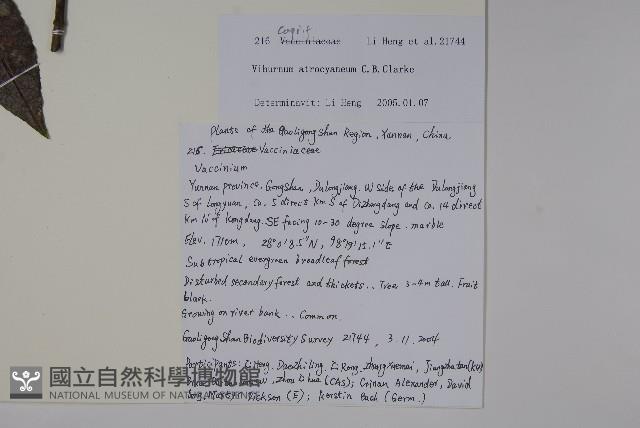 Caprif
216 Vacciniaceae Li Heng et al. 21744
Viburnum atrocyaneum C.B. Clarke
Determinavit: Li Heng 2005.01.07
Plants of the Gaoligong Shan Region, Yunnan, China
216. Vacciniaceae
Vaccinium
Yunnan province. Gongshan, Dulongjiang. W side of the Dulongjiang
S of Longyuan, ca. 5 direct km S of Dizhengdang and ca. 14 direct
km N of Kongdang. SE facing 10-30 degree slope. marble
Elev. 1710m, 28°0'8.5"N, 98°19'15.1"E
Subtropical evergreen broadleaf forest
Disturbed secondary forest and thickets.. Tree 3-4m tall. Fruit
black.
Growing on river bank.. Common
Gaoligong Shan Biodiversity Survey 21744, 3.11.2004
Participants: Li Heng, Dao Zhiling, Li Rong, Zhang Xuemei, Jiang
Zhou Lihua (CAS); Crinan Alexander, David
Dickson (E); Kerstin Bach (Germ.)
國立自然科學博物館
NATIONAL MUSEUM OF NATURAL SCIENCE